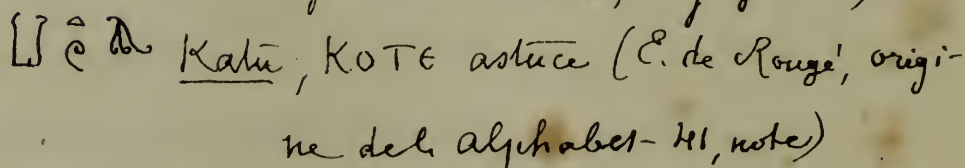 Katū, ⲕⲟⲧⲉ astūce (E. de Rougé, origi-
ne de l'alphabet- 41, note)